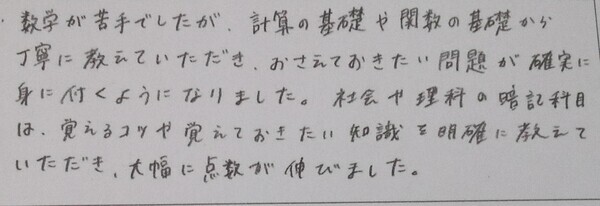 ・数学が苦手でしたが、計算の基礎や関数の基礎から
丁寧に教えていただき、おさえておきたい問題が確実に
身に付くようになりました。社会や理科の暗記科目
は、覚えるコツや覚えておきたい知識を明確に教えて
いただき、大幅に点数が伸びました。